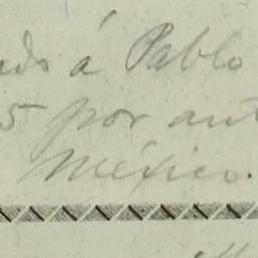 ado á Pablo
5 por ant
México.